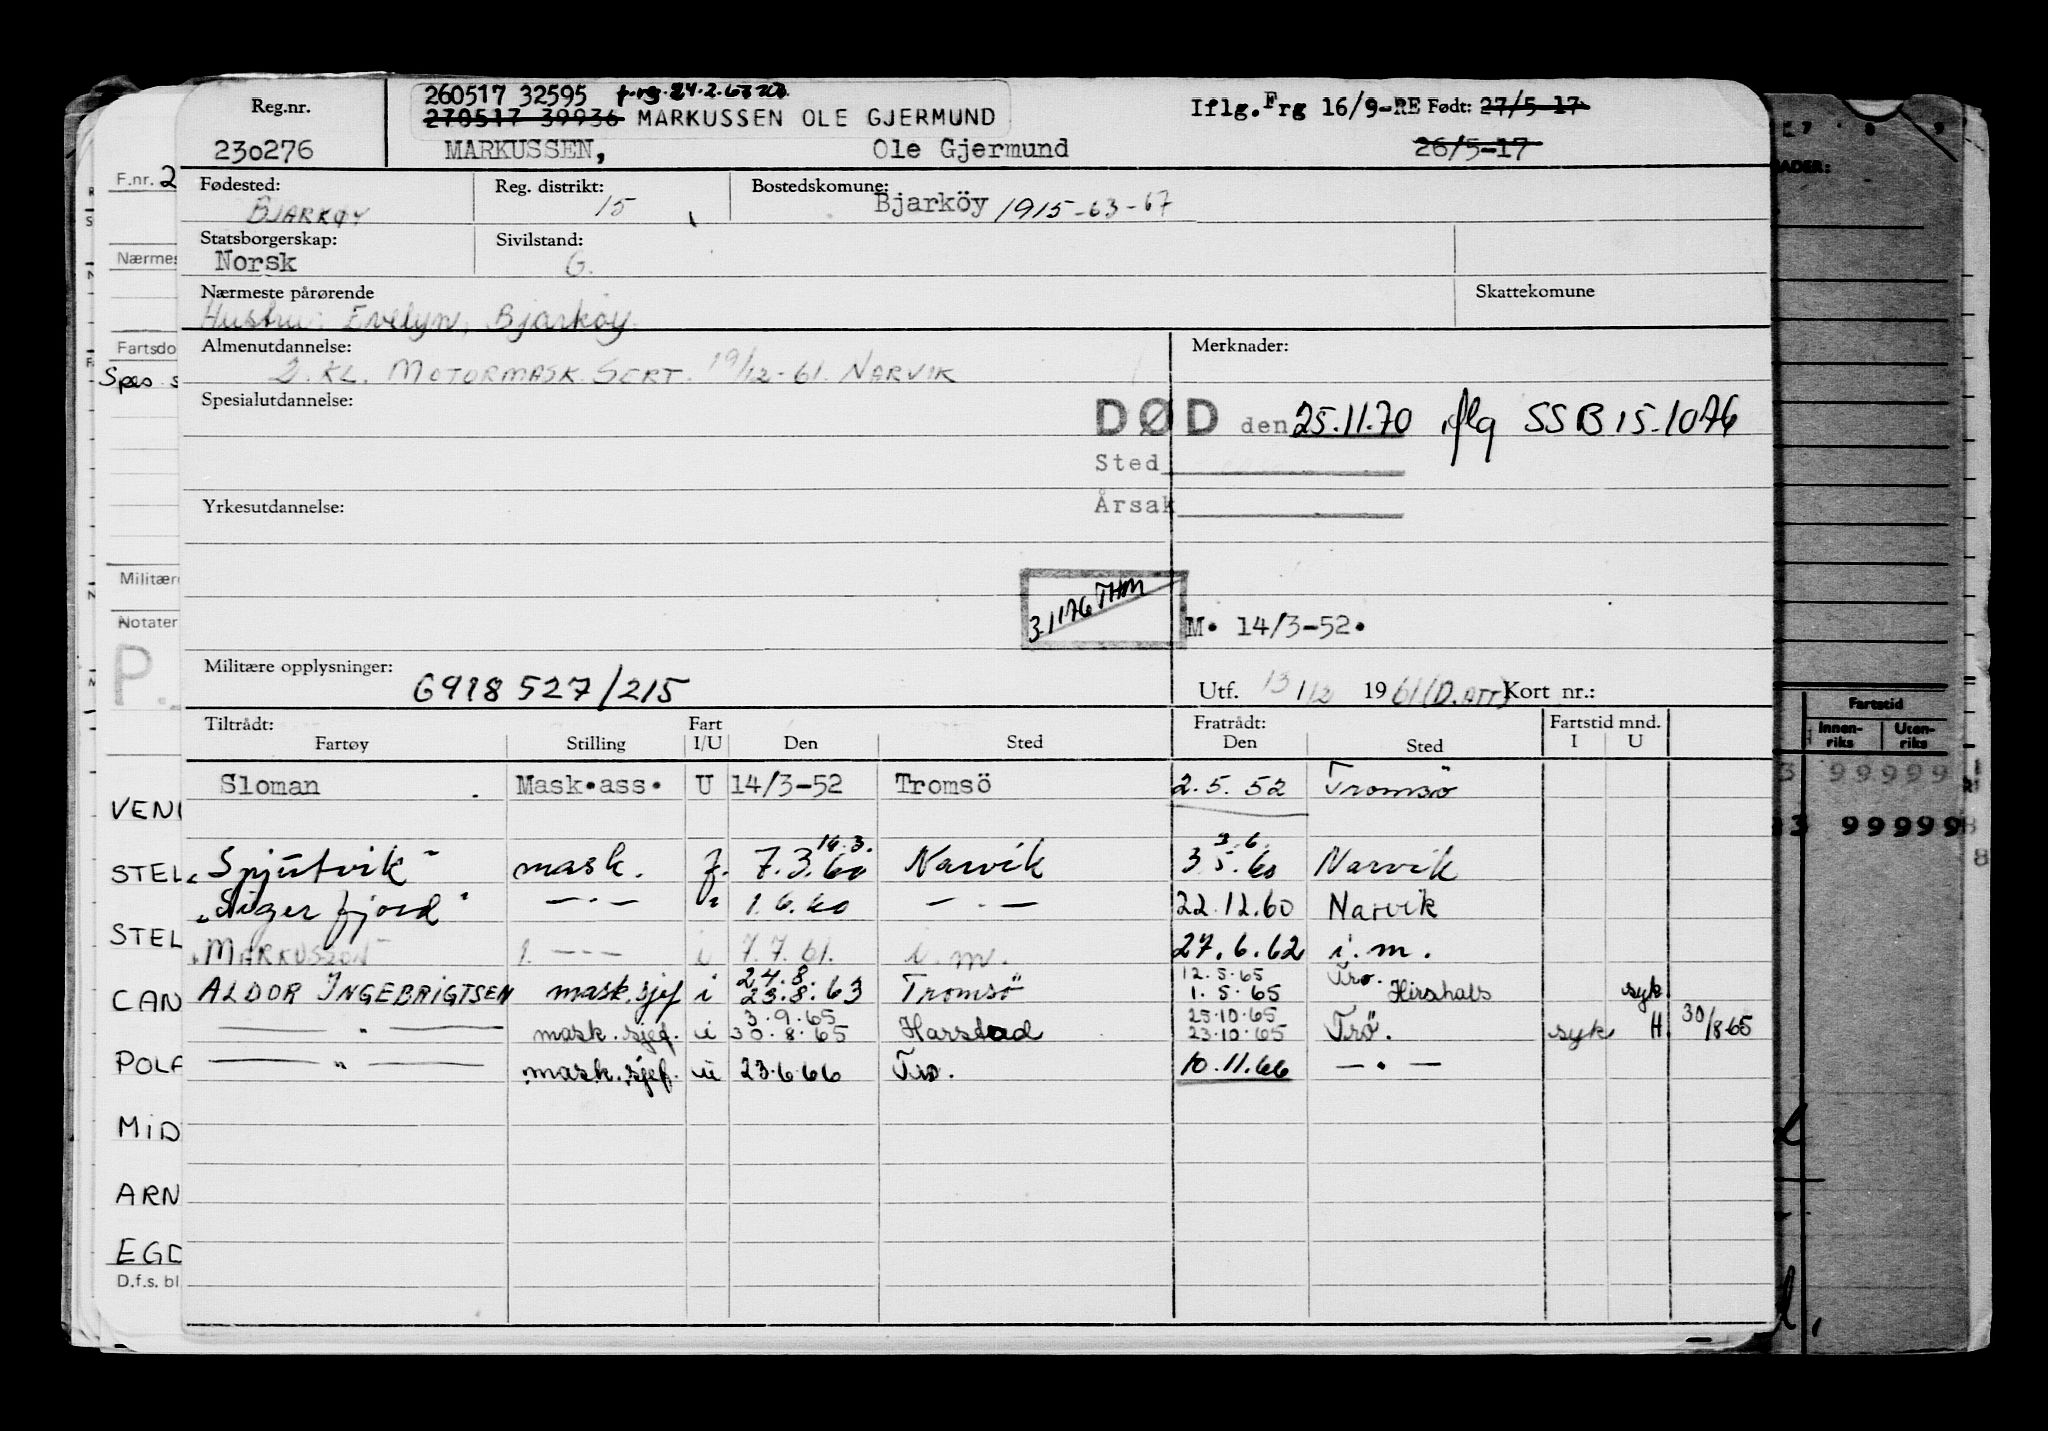 Reg.nr.
230276
260517 32595
270517 39936 MARKUSSEN OLE GJERMUND
MARKUSSEN, Ole Gjermund
Iflg. Frg 16/9-RE Født: 27/5-17
26/5-17
F.nr. 2
Fødested: Reg. distrikt: Bostedskomune:
BJARKØY 15 Bjarköy 1915-63-67
Statsborgerskap: Sivilstand:
Norsk G.
Nærmes
Nærmeste pårørende Skattekomune
Hustru: Evelyn, Bjarkøy.
Fartsdo
Almenutdannelse: Merknader:
2. KL. MOTORMASK. SERT. 19/12-61. NARVIK
Spes. s
Spesialutdannelse:
DØD den 25.11.70 iflg SSB 15-1076
Sted
Årsak
Yrkesutdannelse:
Militære
3-1176 THM
Notater
M. 14/3-52.
P.
Militære opplysninger: 6918527/215
Utf. 13/12 1961 (D.ATT) Kort nr.:
Tiltrådt: Fart Fratrådt: Fartstid mnd.
Fartøy Stilling I/U Den Sted Den Sted I U
Sloman Mask.ass. U 14/3-52 Tromsö 2.5.52 Tromsö
14.3. 3.6.
"Spjutvik" mask. f. 7.3.60 Narvik 3 5.60 Narvik
"Sigerfjord" — . — " 1.6.60 — . — 22.12.60 Narvik
"MARKUSSON" 1. — - — i 7.7.61. i.m. 27.6.62 i.m.
24.8. 12.5.65 Tro.
ALDOR INGEBRIGTSEN mask.sjef i 23.8.63 Tromsö 1.5.65 Hirshals syk
3.9.65 25.10.65
— " — mask.sjef. u 30.8.65 Harstad 23.10.65 Trö. syk H 30/8 65
— " — mask.sjef. u 23.6.66 Tro. 10.11.66 — . —
VEN
STEL
STEL
CAN
POLA
MID
ARN
EGD
D.f.s. bl
Fartstid
Innen-
riks
Uten-
riks
3 99999
3 99999